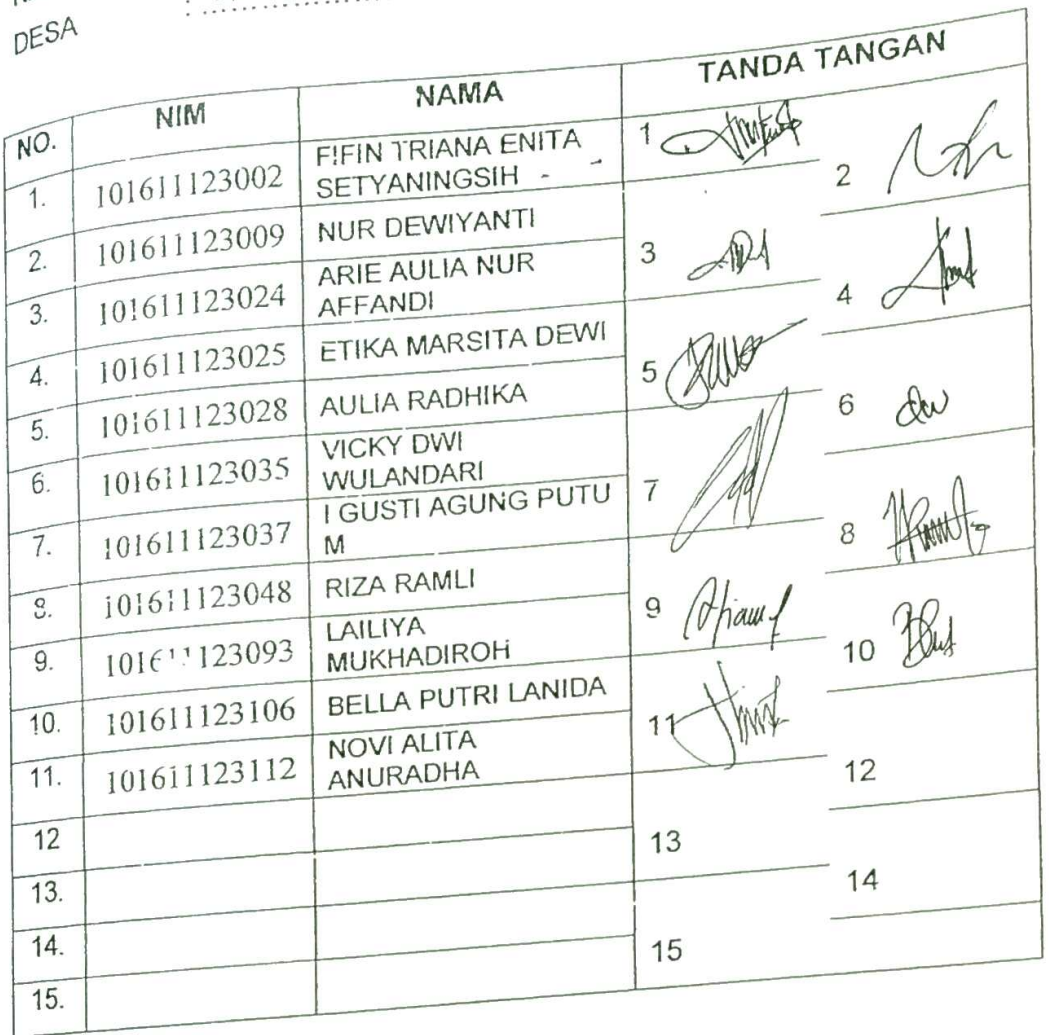 DESA :
NO. NIM NAMA TANDA TANGAN
1. 101611123002 FIFIN TRIANA ENITA
SETYANINGSIH - 1
2
2. 101611123009 NUR DEWIYANTI
3. 101611123024 ARIE AULIA NUR
AFFANDI 3
4
4. 101611123025 ETIKA MARSITA DEWI
5. 101611123028 AULIA RADHIKA 5
6
6. 101611123035 VICKY DWI
WULANDARI
7. 101611123037 I GUSTI AGUNG PUTU
M 7
8
8. 101611123048 RIZA RAMLI
9. 101611123093 LAILIYA
MUKHADIROH 9
10
10. 101611123106 BELLA PUTRI LANIDA
11. 101611123112 NOVI ALITA
ANURADHA 11
12
12
13. 13
14
14.
15. 15